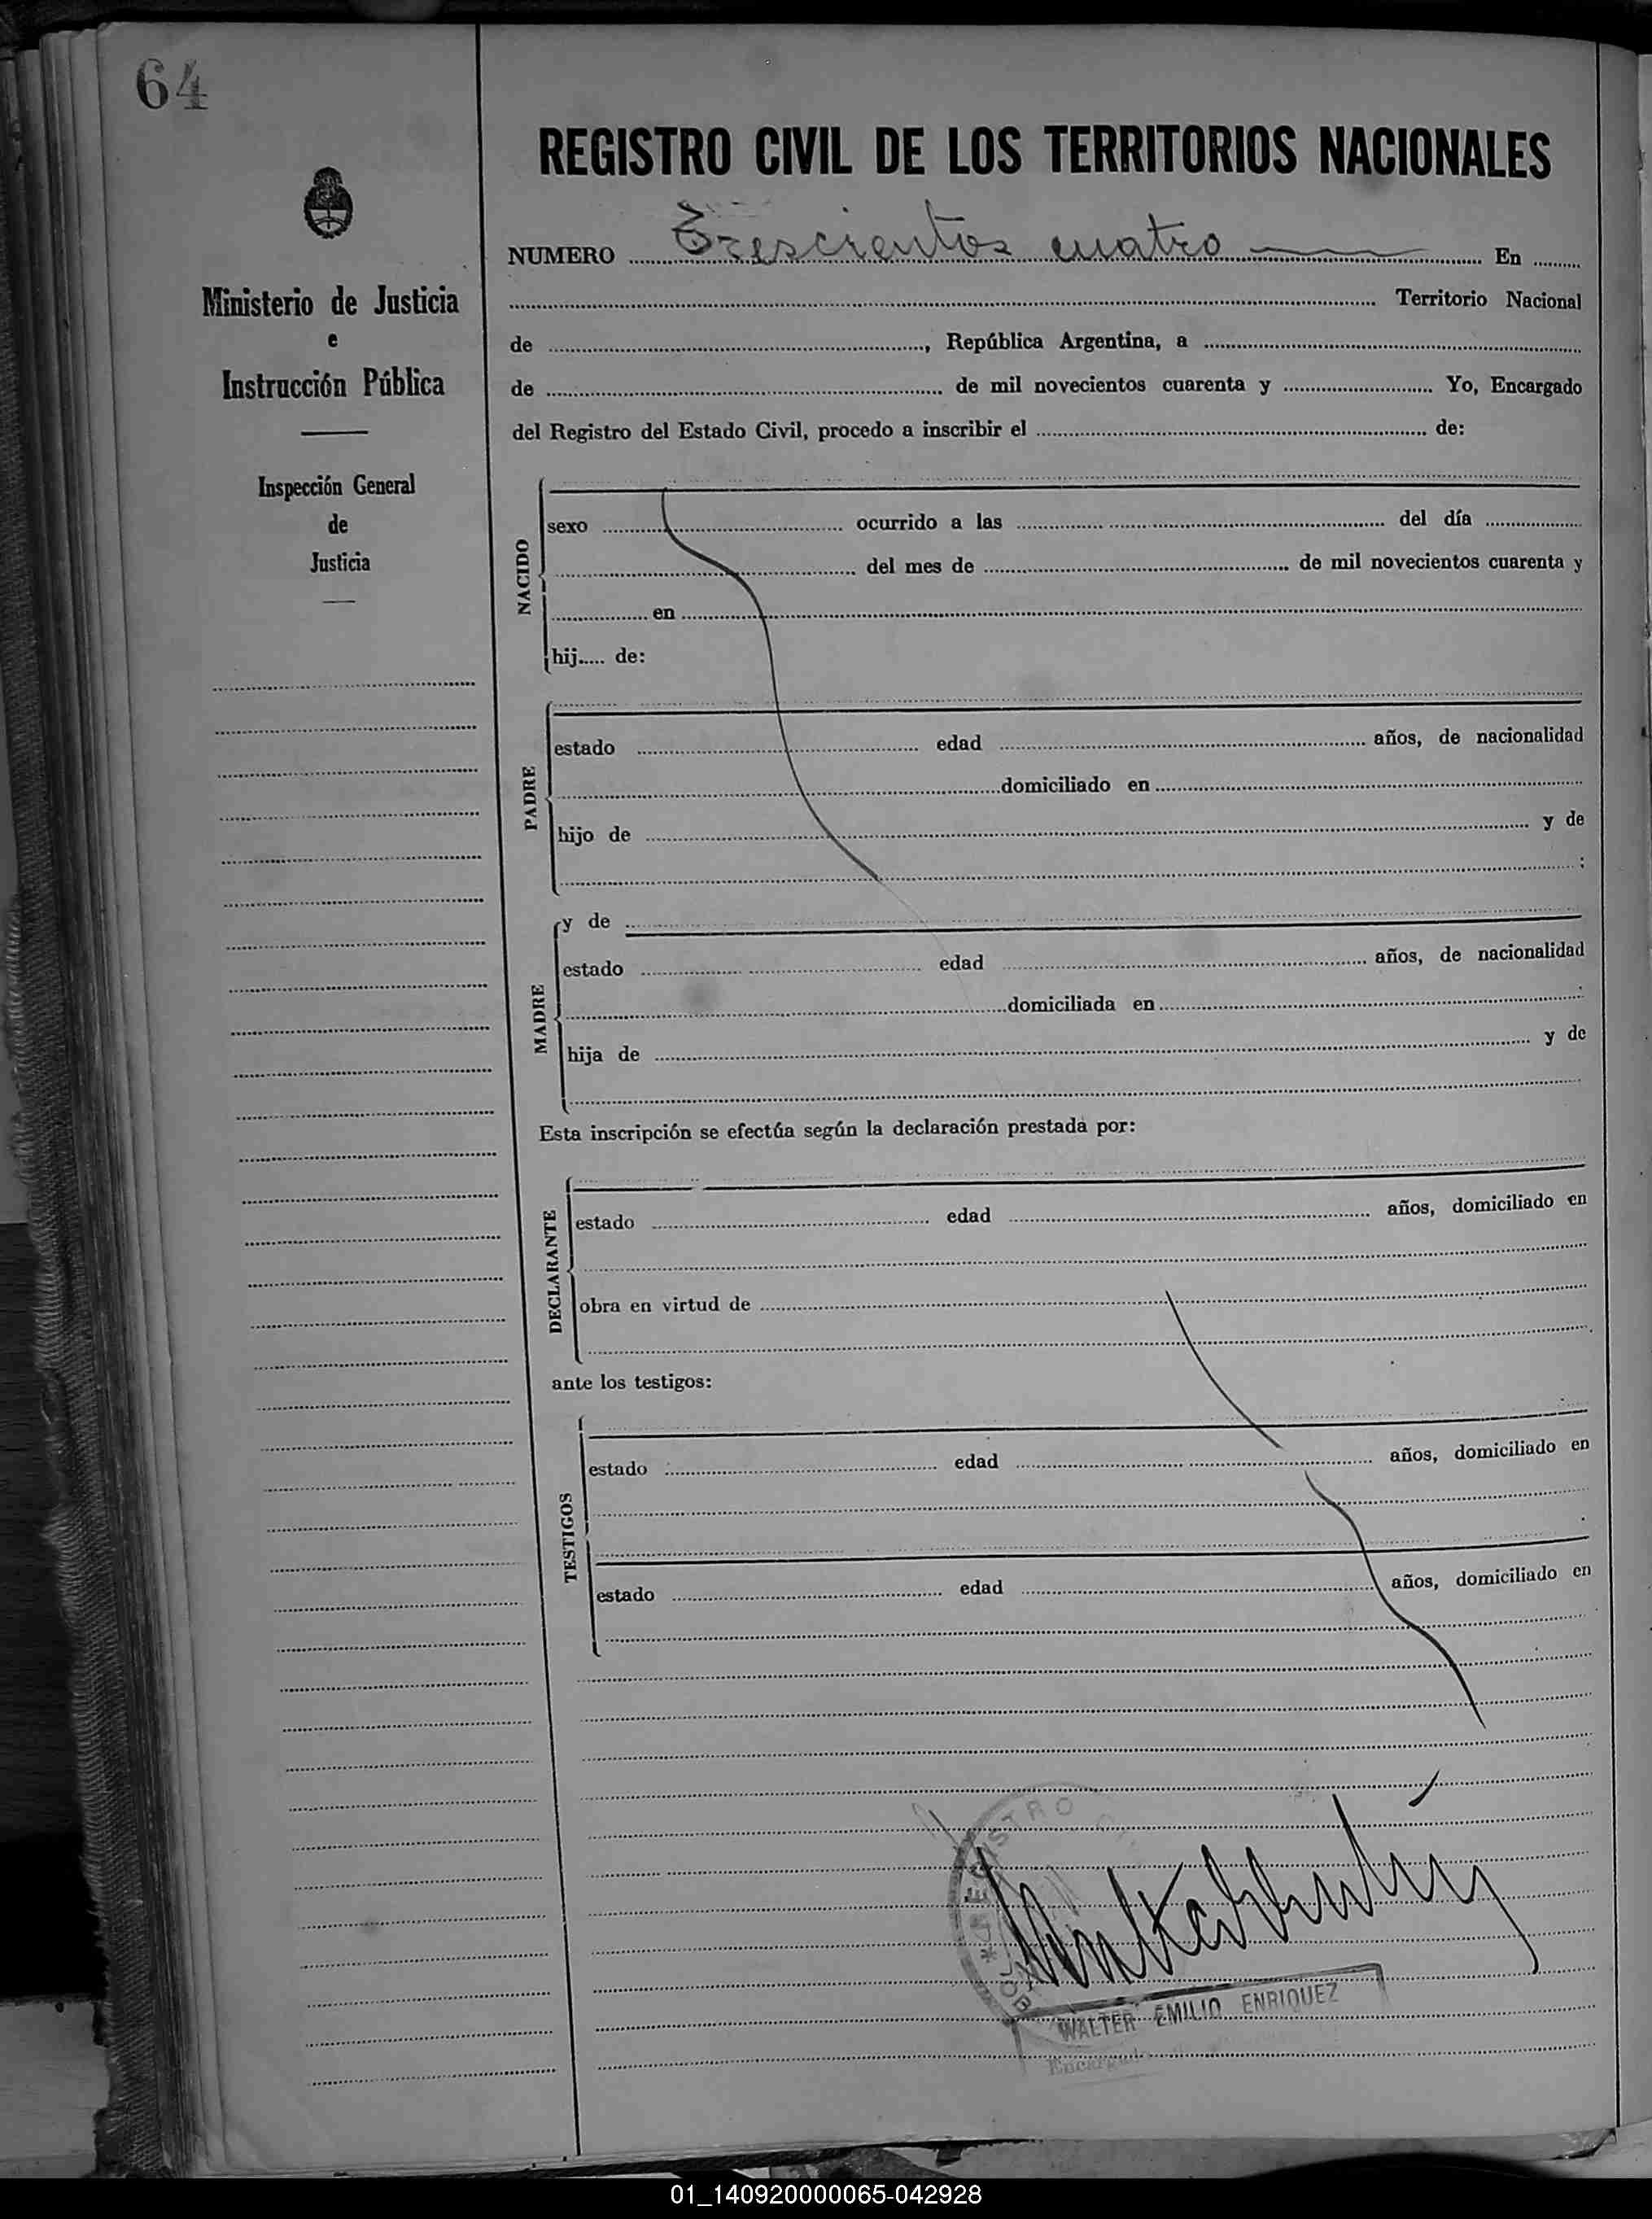 64
REGISTRO CIVIL DE LOS TERRITORIOS NACIONALES
NUMERO Trescientos cuatro En
Territorio Nacional
de , República Argentina, a
de de mil novecientos cuarenta y Yo, Encargado
del Registro del Estado Civil, procedo a inscribir el de:
Ministerio de Justicia
e
Instrucción Pública
Inspección General
de
Justicia
NACIDO
sexo ocurrido a las del día
del mes de de mil novecientos cuarenta y
en
hij..... de:
PADRE
estado edad años, de nacionalidad
domiciliado en
hijo de y de
;
MADRE
y de
estado edad años, de nacionalidad
domiciliada en
hija de y de
Esta inscripción se efectúa según la declaración prestada por:
DECLARANTE
estado edad años, domiciliado en
obra en virtud de
ante los testigos:
TESTIGOS
estado edad años, domiciliado en
estado edad años, domiciliado en
REGISTRO
WALTER EMILIO ENRIQUEZ
Encargado
01_140920000065-042928